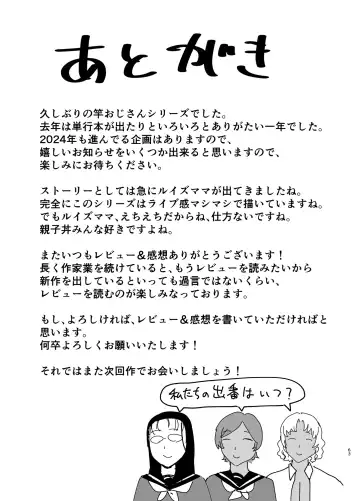 あとがき
久しぶりの竿おじさんシリーズでした。
去年は単行本が出たりといろいろとありがたい一年でした。
2024年も進んでる企画はありますので、
嬉しいお知らせをいくつか出来ると思いますので、
楽しみにお待ちください。
ストーリーとしては急にルイズママが出てきましたね。
完全にこのシリーズはライブ感マシマシで描いていますね。
でもルイズママ、えちえちだからね、仕方ないですね。
親子丼みんな好きですよね。
またいつもレビュー＆感想ありがとうございます！
長く作家業を続けていると、もうレビューを読みたいから
新作を出しているといっても過言ではないくらい、
レビューを読むのが楽しみなっております。
もし、よろしければ、レビュー＆感想を書いていただければと
思います。
何卒よろしくお願いいたします！
それではまた次回作でお会いしましょう！
私たちの出番はいつ？